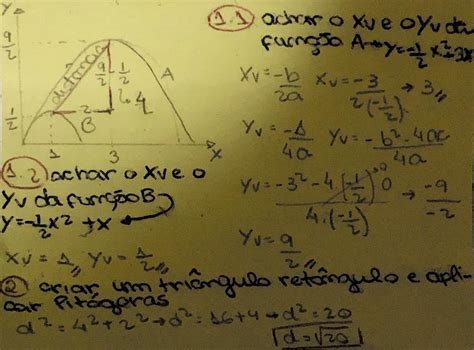 y
9/2
1/2
distância
9/2 - 1/2
4
2
A
B
1
3
x
1.1 achar o Xv e o Yv da
função A → y = -1/2 x² + 3x
Xv = -b/2a Xv = -3/2(-1/2) → 3
Yv = -Δ/4a Yv = -b² - 4ac/4a
Yv = -3² - 4(-1/2)0/4.(-1/2) → -9/-2
0
Yv = 9/2
1.2 achar o Xv e o
Yv da função B
y = -1/2 x² + x
Xv = 1, Yv = 1/2
2 criar um triângulo retângulo e apli-
car Pitágoras
d² = 4² + 2² → d² = 16 + 4 → d² = 20
d = √20